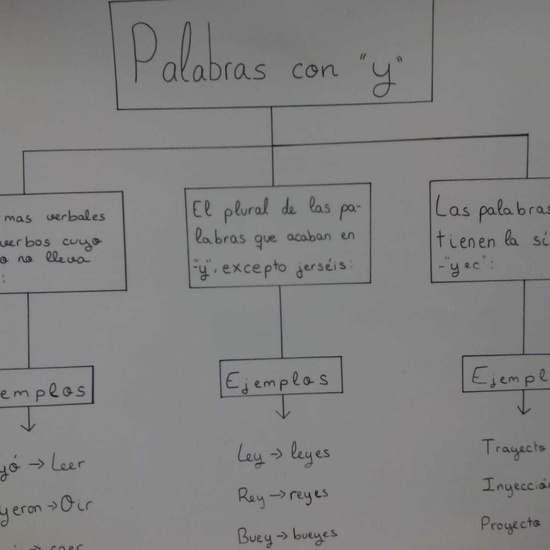 Palabras con "y"
mas verbales
verbos cuyo
o no lleva
:
El plural de las pa-
labras que acaban en
-"y", excepto jerséis:
Las palabras
tienen la sí
-"yec":
emplos
Ejemplos
Ejempl
yó → Leer
yeron → Oir
→ caer
Ley → leyes
Rey → reyes
Buey → bueyes
Trayecto
Inyección
Proyecto